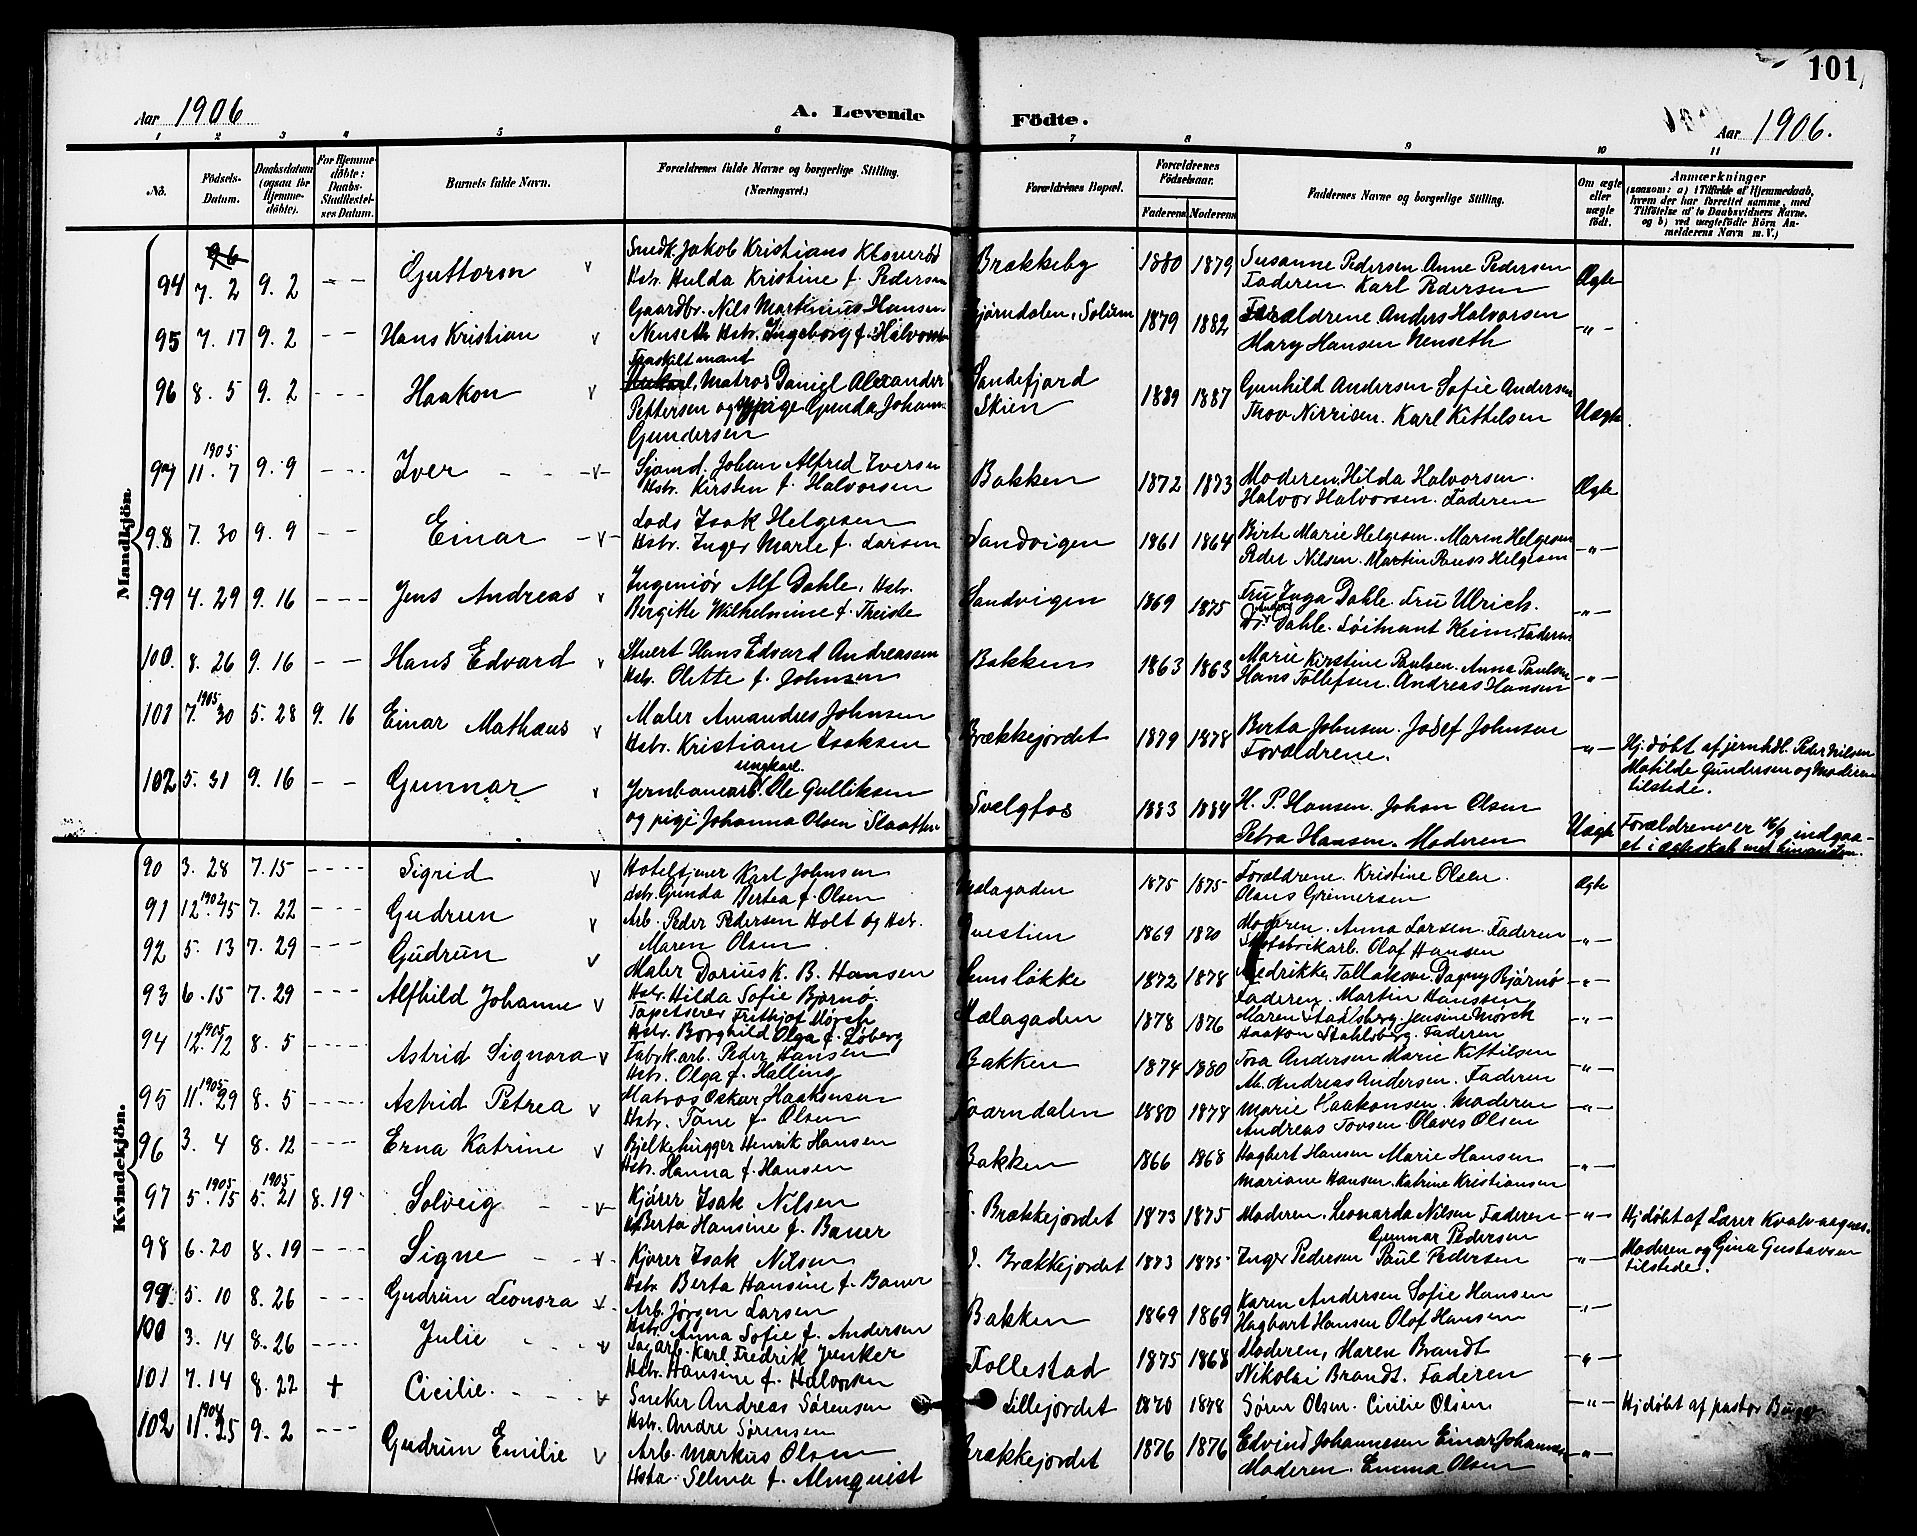 101
Aar 1906
A. Levende
Födte.
Aar 1906.
1 2 3 4 5 6 7 8 9 10 11
No.
Födsels-Datum.
Daabsdatum (ogsaa for Hjemmedöbte).
For Hjemmedöbte: Daabs-Stadfæstelses Datum.
Barnets fulde Navn.
Forældrenes fulde Navne og borgerlige Stilling.
(Næringsvei.)
Forældrenes Bopæl.
Forældrenes Födselsaar.
Faderens Moderens
Faddernes Navne og borgerlige Stilling.
Om ægte eller uægte födt.
Anmærkninger
(saasom: a) i Tilfælde af Hjemmedaab, hvem der har forrettet samme, med Tilföielse af to Daabsvidners Navne, og b) ved uægtefödte Börn Anmelderens Navn m. V.)
Mandkjön
94 7. 2 9. 2 - - Guttorm v
Jakob Kristians
Hstr. Hulda Kristine f. Pedersen
Brækkeby 1880 1879
Susanne Pedersen. Anne Pedersen
Faderen. Karl Pedersen
Ægte
95 7. 17 9. 2 - - Hans Kristian v
Gaardbr. Nils Martinius Hansen
Nenseth Hstr. Ingeborg f. Halvorsen
Bjørndalen, Solum 1879 1882
Forældrene. Anders Halvorsen
Mary Hansen Nenseth
-"-
96 8. 5 9. 2 - - - Haakon v
Fraskilt mand
Matros Daniel Alexander
Pettersen og pige Gunda Johanne
Gundersen
Sandefjord
Skien
1889 1887
Gunhild Andersen Sofie Andersen
Karl Kittelsen
Uægte
97 1905 11. 7 9. 9 - - - Iver - - -v-
Sjømd. Johan Alfred Iversen
Hstr. Kirsten f. Halvorsen
Bakken 1872 1873
Moderen. Hilda Halvorsen.
Halvor Halvorsen. Faderen
Ægte
98 7. 30 9. 9 - - Einar -v-
Lods Isak Helgesen
Hstr. Inger Marie f. Larsen
Sandvigen 1861 1864
Birte Marie Helgesen. Maren Helgesen
Peder Nilsen. Martin Helgesen
-"-
99 4. 29 9. 16 - - - Jens Andreas v
Ingeniør Alf Dahle. Hstr.
Birgitte Wilhelmine f. Theiste
Sandvigen 1869 1875
Fru Inga Dahle. Fru Ulrich.
Dahle. Løitnant Heim. Faderen
-"-
100. 8. 26 9. 16 - - Hans Edvard v
Stuert Hans Edvard Andreassen
Hstr. Olette f. Johnsen
Bakken 1863 1863
Marie Kirstine Paulsen. Anna Paulsen
Hans Tollefsen. Andreas Hansen
-"-
101 1905 7. 30 5. 28 9. 16 Einar Mathæus v
Maler Amandus Johnsen
Hstr. Kristiane Isaksen
Brækkejordet 1879 1878
Berta Johnsen. Josef Johnson
Forældrene.
-"-
Hj. døbt af jernhdl. Peter Nilsen
Matilde Gundersen og Moderen
tilstede.
102 5. 31 9. 16 - - Gunnar v
ungkarl.
Jernbanearb. Ole Gulliksen
og pige Johanna Olsen Slaatten
Svælgfos 1883 1884
H. P. Hansen. Johan Olsen
Petra Hansen. Moderen
Uægte
Forældrene er 16/9 indgaa-
et i ægteskab med hinanden.
Kvindekjön.
90 3. 28 7. 15 - - - Sigrid v
Hoteltjener Karl Johnsen
Hstr. Gunda Bertea f. Olsen
1875 1875
Forældrene. Kristine Olsen.
Olaus Grimersen
Ægte
91 1902 12. 15 7. 22 - - - Gudrun v
Arb. Peder Pedersen Holt og Hstr.
Maren Olsen
1869 1870
Moderen. Anna Larsen. Faderen
Olaf Hansen
-"-
92 5. 13 7. 29 - - - Gudrun v
Maler Darius K. B. Hansen
Hstr. Hilda Sofie Bjørnø.
1872 1878
Fredrikke Tallaksen Dagny Bjørnø
Faderen. Martin Hanssen
-"-
93 6. 15 7. 29 - - - Alfhild Johanne v
Tapetserer Frithjof Mørch
Hstr. Borghild Olga f. Løberg
Hælagaden 1878 1876
Maren Stahlsberg. Jensine Mørch
Haakon Stahlsberg. Faderen
-"-
94 1905 12. 12 8. 5 - - - Astrid Signora v
Fabrkarb. Peder Hansen
Hstr. Olga f. Halling
Bakken 1874 1880
Tora Andersen Marie Kittilsen
M. Andreas Andersen. Faderen
-"-
95 1905 11. 29 8. 5 - - - Astrid Petrea v
Matros Oskar Haakonsen
Hstr. Tone f. Olsen
1880 1878
Marie Haakonsen. Moderen
Andreas Tovsen Olaves Olsen
-"-
96 3. 4 8. 12 - - - Erna Katrine v
Bjelkehugger Henrik Hansen
Hstr. Hanna f. Hansen
Bakken 1866 1868
Hagbert Hansen Marie Hansen
Mariane Hansen. Katrine Kristiansen
-"-
97 1905 5. 15 1905 5. 21 8. 19 Solveig - -v-
Kjører Isak Nilsen
Berta Hansine f. Bauer
Brækkejordet 1873 1875
Moderen. Leonarda Nilsen Faderen
Gunnar Pedersen
-"-
Hj. døbt af Lærer Kvalvaagnes.
Moderen og Gina Gustavsen
tilstede.
98 6. 20 8. 19 - - - Signe - - v-
Kjører Isak Nilsen
Hstr. Berta Hansine f. Bauer
Brækkejordet 1873 1875
Inger Pedersen Paul Pedersen
-"-
99. 5. 10 8. 26 - - - Gudrun Leonora v
Arb. Jørgen Larsen
Hstr. Anna Sofie f. Andersen
Bakken 1869 1869
Karen Andersen Sofie Hansen
Hagbart Hansen Olof Hansen
-"-
100 3. 14 8. 26 - - - Julie v
Sagarb. Karl Fredrik Junker
Hstr. Hansine f. Halvorsen
Follestad 1875 1868
Moderen, Maren Brandt
Nikolai Brandt. Faderen
-"-
101 7. 14 8. 22 + Cicilie. - - - v
Sneker Andreas Sørensen
Hstr. Andre Sørensen
Lillejordet 1870 1878
Søren Olsen. Cicilie Olsen
-"-
Hj. døbt af pastor Bugge
102 1904 11. 25 9. 2 - - - Gudrun Emilie v
Arb. Markus Olsen
Hstr. Selma f. Almquist
Brækkejordet 1876 1876
Edvind Johannesen Einar Johannesen
Moderen. Emma Olsen
-"-